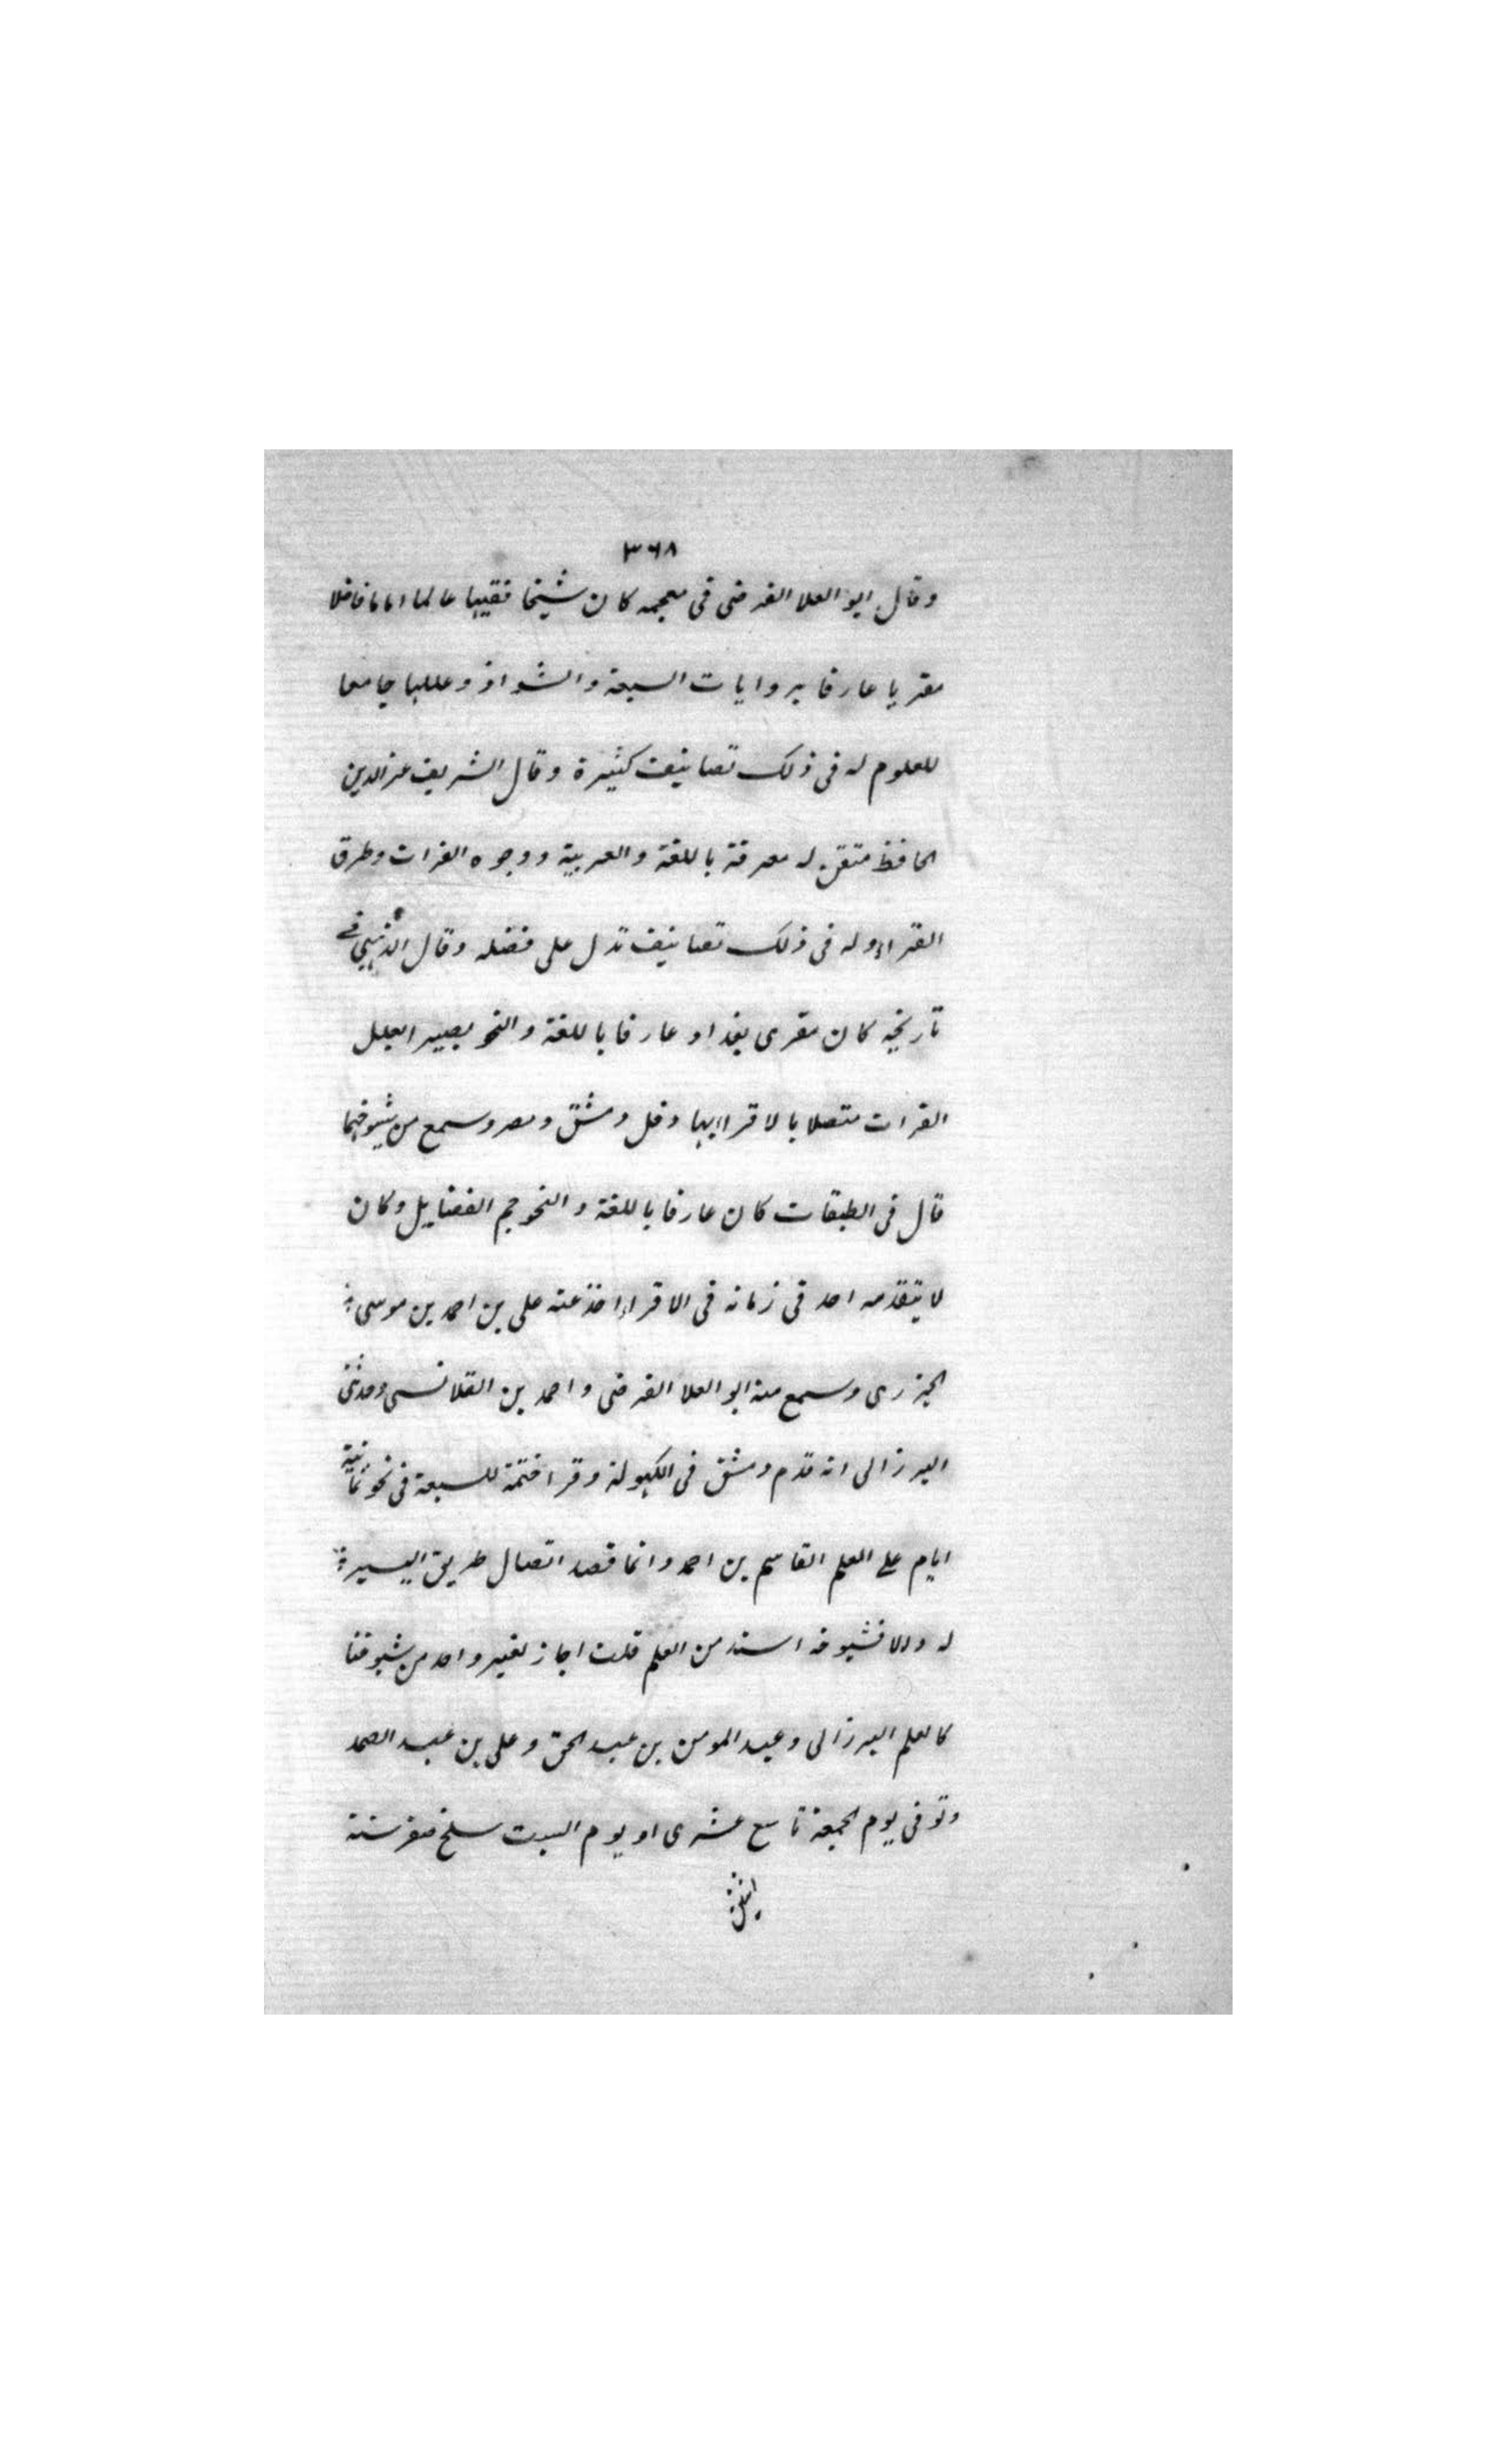 ٣٦٨
وقال ابو العلا الفرضى فى معجمه كان شيخا فقيها عالما اماما فاضلا
مقريا عارفا بروايات السبعة والشواذ وعللها جامعا
للعلوم له فى ذلك تصانيف كثيرة وقال الشريف عز الدين
الحافظ متقن له معرفة باللغة والعربية ووجوه القرات وطرق
القراء وله فى ذلك تصانيف تدل على فضله وقال الذهبي في
تاريخه كان مقرى بغداد عارفا باللغة والنحو بصيرا بعلل
القرات متصلا بالاقراء بها دخل دمشق ومصر وسمع من شيوخهما
قال فى الطبقات كان عارفا باللغة والنحو جم الفضايل وكان
لا يتقدمه احد فى زمانه فى الاقراء اخذ عنه على بن احمد بن موسى
الجزرى وسمع منه ابو العلا الفرضى واحمد بن القلانسى وحدثنى
البرزالى انه قدم دمشق فى الكهولة وقرا ختمة للسبعة فى نحو ثمانية
ايام على العلم القاسم بن احمد وانما قصد اتصال طريق اليسير
له والا فشيوخه اسند من العلم قلت اجاز لغير واحد من شيوخنا
كالعلم البرزالى وعبد المومن بن عبد الحق وعلى بن عبد الصمد
وتوفى يوم الجمعة تاسع عشرى او يوم السبت سلخ صفر سنة